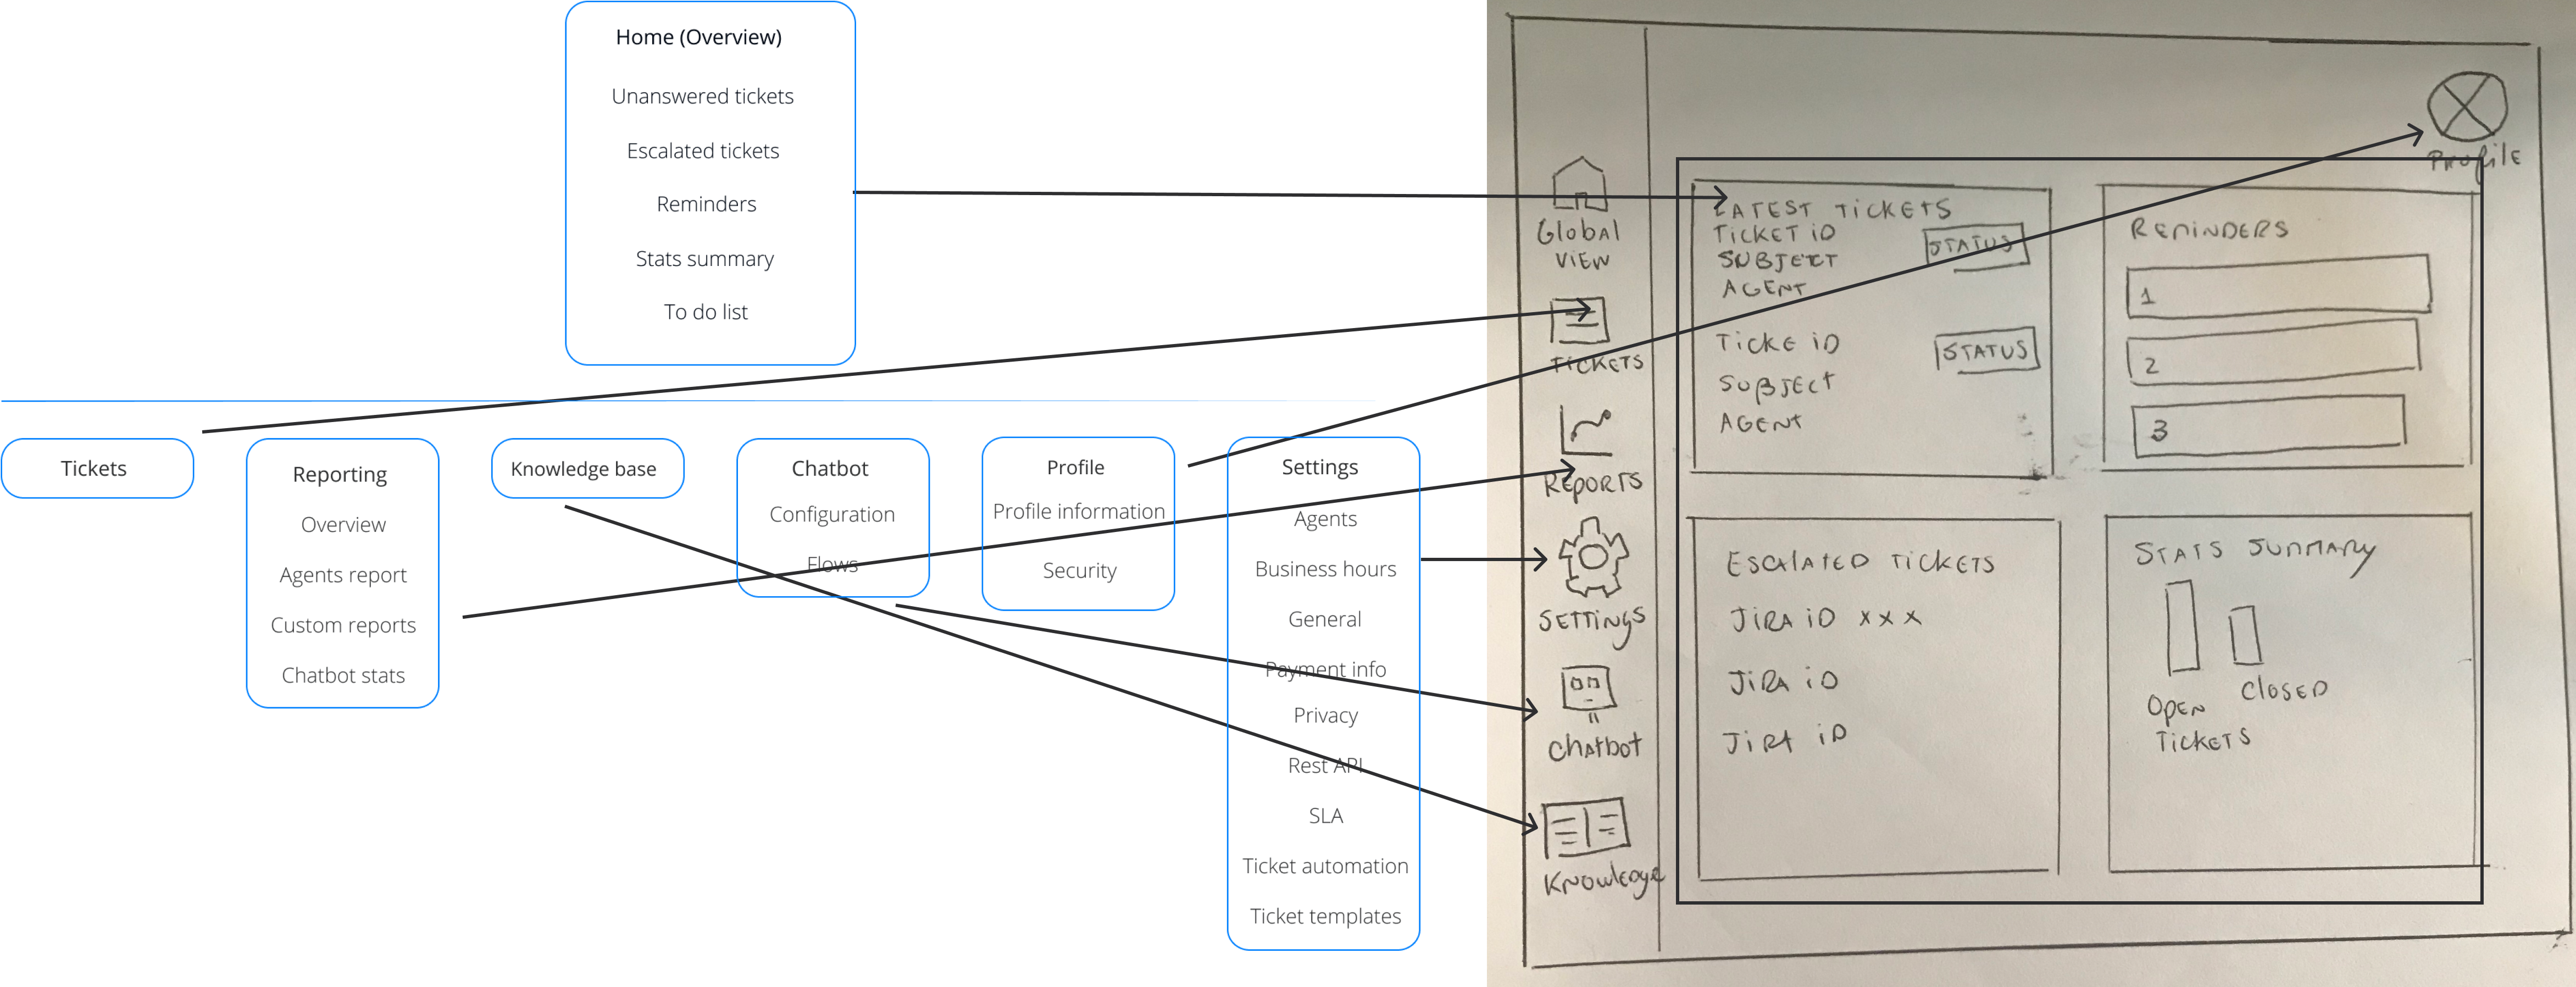 Home (Overview)
Unanswered tickets
Escalated tickets
Reminders
Stats summary
To do list
Tickets
Reporting
Overview
Agents report
Custom reports
Chatbot stats
Knowledge base
Chatbot
Configuration
Flows
Profile
Profile information
Security
Settings
Agents
Business hours
General
Payment info
Privacy
Rest API
SLA
Ticket automation
Ticket templates
Global
View
Tickets
Reports
Settings
Chatbot
Knowledge
Profile
LATEST TICKETS
TICKET ID
SUBJECT
AGENT
STATUS
TICKE ID
SUBJECT
AGENT
STATUS
REMINDERS
1
2
3
ESCALATED TICKETS
JIRA ID xxx
JIRA ID
JIRA ID
STATS SUMMARY
OPEN
TICKETS
CLOSED